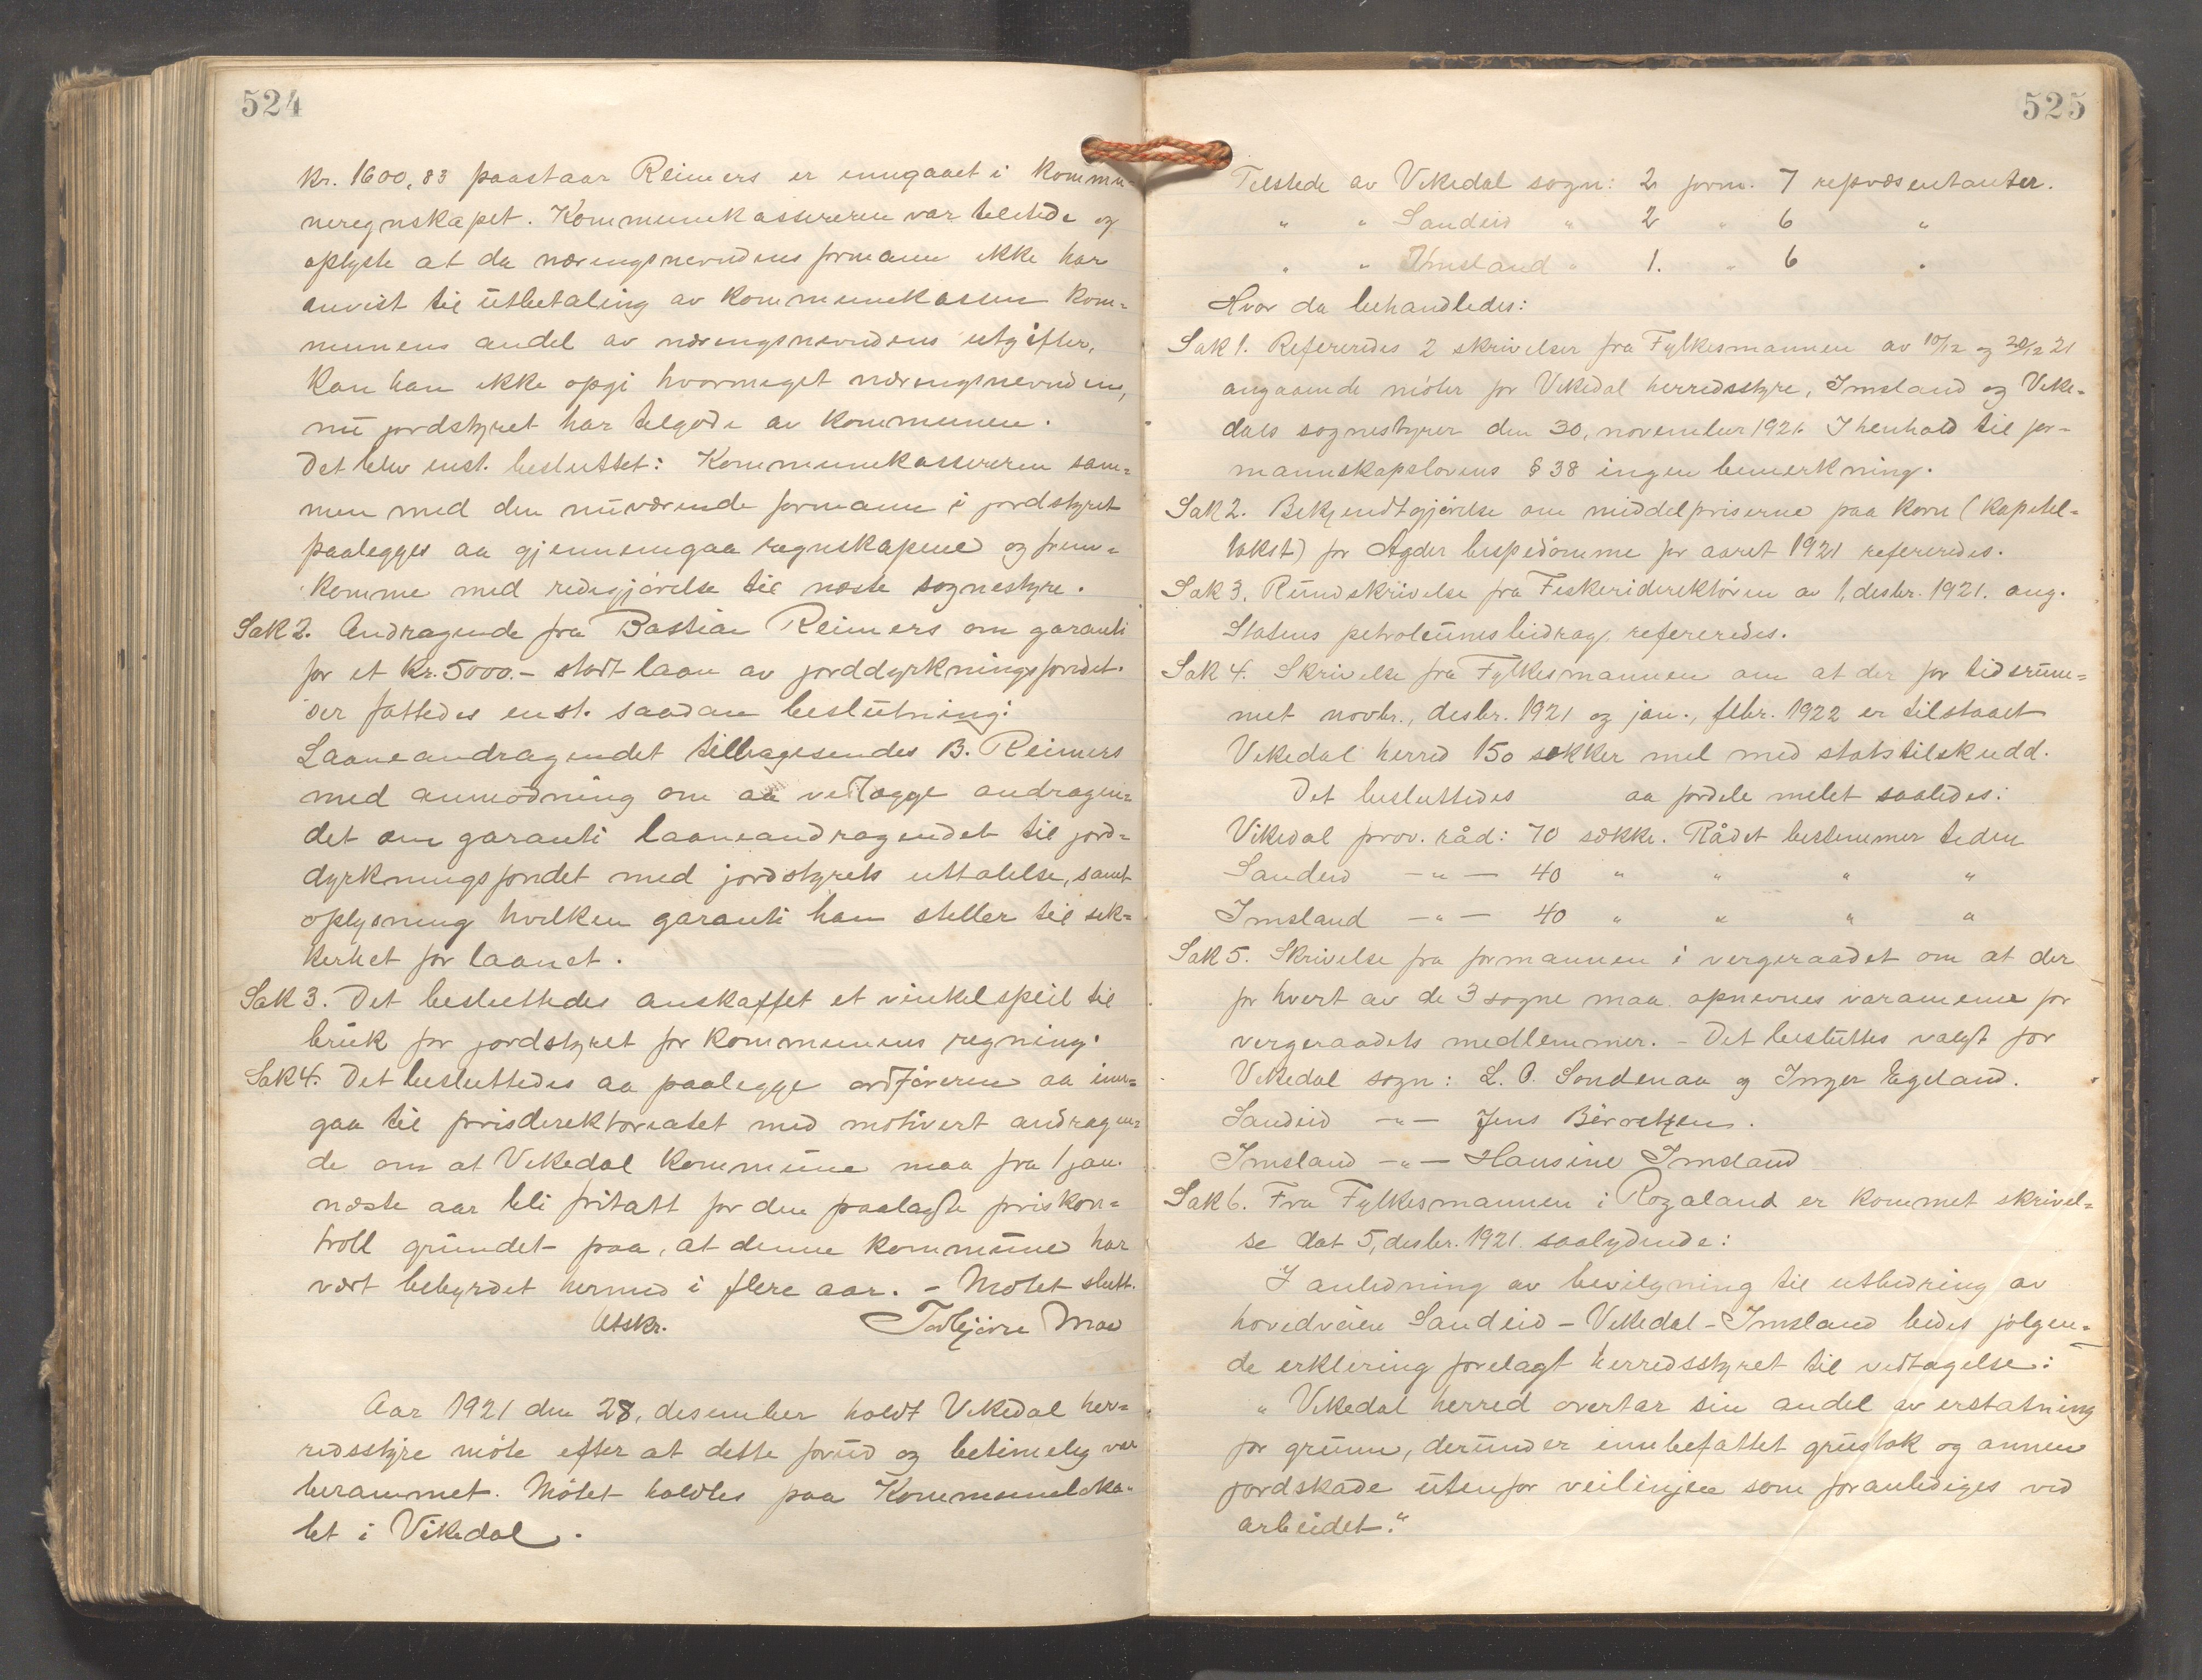 524
kr. 1600,83 paastaar Reimers er inngaaet i kommu-
neregnskapet. Kommunekassereren var tilstede og
oplyste at da næringsnevndens formann ikke har
anvist til utbetaling av kommunekassen kom=
munens andel av næringsnevndens utgifter,
kan han ikke opgi hvormeget næringsnevnden,
nu jordstyret har tilgode av kommunen.
Det blev enst. besluttet: Kommunekassereren sam=
men med den nuværende formann i jordstyret
paalegges aa gjennemgaa regnskapene og frem=
komme med redegjørelse til næste sognestyre.
Sak 2. Andragende fra Bastian Reimers om garanti
for et kr. 5000.- stort laan av jorddyrkningsfondet.
Der fattedes enst. saadan beslutning:
Laaneandragendet tilbagesendes B. Reimers
med anmodning om aa vedlægge andragen=
det om garanti laaneandragendet til jord=
dyrkningsfondet med jordstyrets uttalelse, samt
oplysning hvilken garanti han stiller til sik=
kerhet for laanet.
Sak 3. Det besluttedes anskaffet et vinkelspeil til
bruk for jordstyret for kommunens regning.
Sak 4. Det besluttedes aa paalegge ordføreren aa inn=
gaa til prisdirektoratet med motivert andragen=
de om at Vikedal kommune maa fra 1 jan.
næste aar bli fritatt for den paalagte priskon=
troll grundet paa, at denne kommune har
vært bebyrdet hermed i flere aar. - Møtet slutt.
Utskr. Torbjørn Mæ
Aar 1921 den 28, desember holdt Vikedal her=
redsstyre møte efter at dette forud og betimelig var
berammet. Møtet holdtes paa Kommuneloka-
let i Vikedal.
525
Tilstede av Vikedal sogn: 2 form. 7 repræsentanter.
" " Sandeid " 2 " 6 "
" " Imsland " 1. " 6 "
Hvor da behandledes:
Sak 1. Refereredes 2 skrivelser fra Fylkesmannen av 10/12 og 20/12 21
angaaende møter for Vikedal herredsstyre, Imsland og Vike-
dals sognestyrer den 30, november 1921. I henhold til for-
mannskapslovens § 38 ingen bemerkning.
Sak 2. Bekjendtgjørelse om middelpriserne paa korn (kapitel=
takst) for Agder bispedømme for aaret 1921 refereredes.
Sak 3. Rundskrivelse fra Fiskeridirektøren av 1, desbr. 1921. ang.
Statens petroleumsbidrag, refereredes.
Sak 4. Skrivelse fra Fylkesmannen om at der for tidsrum=
met novbr., desbr. 1921 og jan., febr. 1922 er tilstaaet
Vikedal herred 150 sekker mel med statstilskudd.
Det besluttedes aa fordele melet saaledes:
Vikedal prov. råd: 70 sække. Rådet bestemmer tiden
Sandeid -"- 40 " " " "
Imsland -"- 40 " " " "
Sak 5. Skrivelse fra formannen i vergeraadet om at der
for hvert av de 3 sogne maa opnevnes varamenn for
vergeraadets medlemmer. - Det besluttes valgt for
Vikedal sogn: L. O. Søndenaa og Inger Egeland.
Sandeid -"- Jens Børretzen.
Imsland -"- Hansine Imsland
Sak 6. Fra Fylkesmannen i Rogaland er kommet skrivel=
se dat 5, desbr. 1921. saalydende:
I anledning av bevilgning til utbedring av
hovedveien Sandeid - Vikedal - Imsland bedes følgen=
de erklæring forelagt herredsstyret til vedtagelse:
" Vikedal herred overtar sin andel av erstatning
for grunn, derunder innbefattet grustak og annen
jordskade utenfor veilinjen som foranlediges ved
arbeidet."